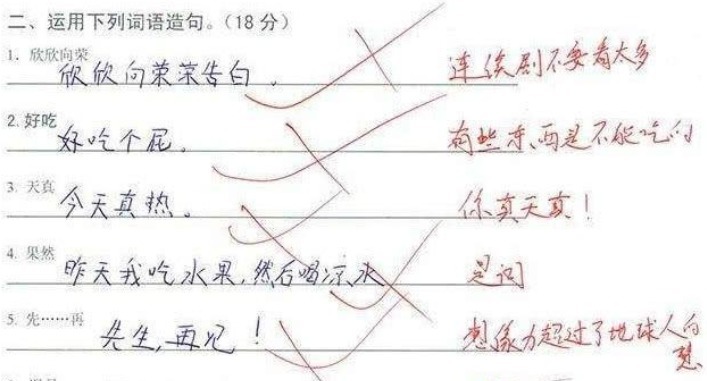 二、运用下列词语造句。(18分)
1. 欣欣向荣
欣欣向荣荣告白。
连续剧不要看太多
2. 好吃
好吃个屁。
有些东西是不能吃的
3. 天真
今天真热。
你真天真!
4. 果然
昨天我吃水果,然后喝凉水
是词
5. 先……再
先生,再见!
想象力超过了地球人的